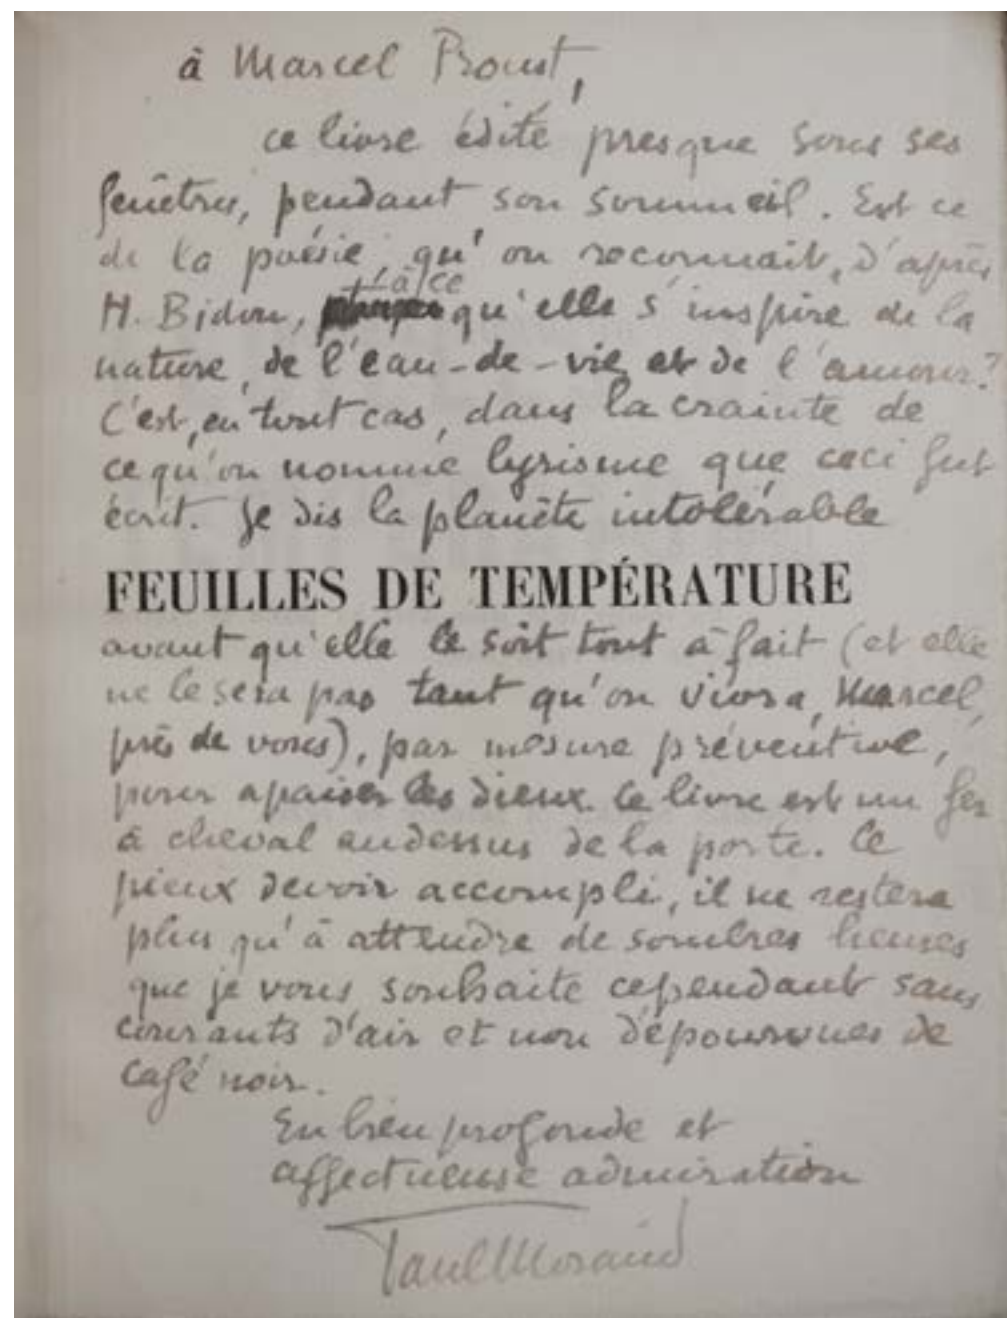 à Marcel Proust,
ce livre édité presque sous ses
fenêtres, pendant son sommeil. Est ce
de la poésie, qu'on reconnait, d'après
H. Bidou, à ce qu'elle s'inspire de la
nature, de l'eau-de-vie et de l'amour?
C'est, en tout cas, dans la crainte de
ce qu'on nomme lyrisme que ceci fut
écrit. Je dis la planète intolérable
FEUILLES DE TEMPÉRATURE
avant qu'elle le soit tout à fait (et elle
ne le sera pas tant qu'on vivra, Marcel,
près de vous), par mesure préventive,
pour apaiser les dieux. Ce livre est un fer
à cheval audessus de la porte. Ce
pieux devoir accompli, il ne restera
plus qu'à attendre de sombres heures
que je vous souhaite cependant sans
courants d'air et non dépourvues de
café noir.
En bien profonde et
affectueuse admiration
Paul Morand